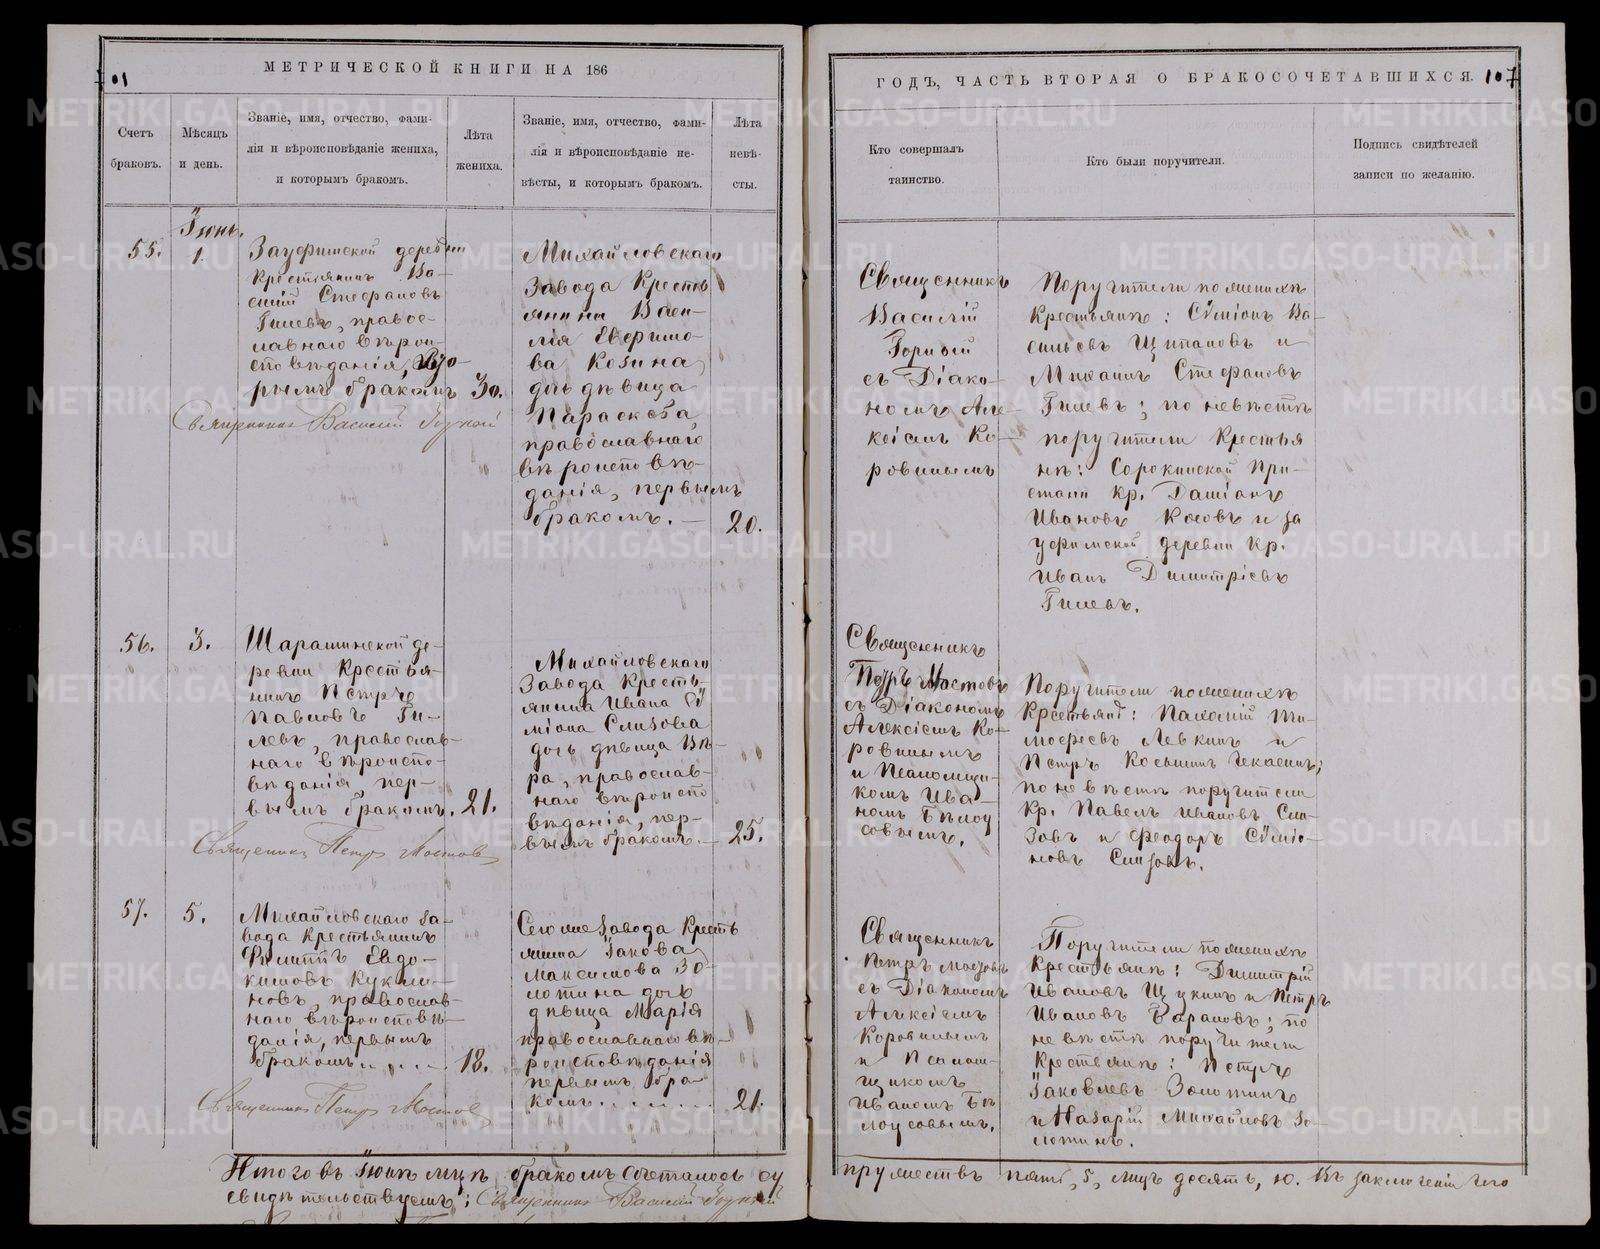 МЕТРИЧЕСКОЙ КНИГИ НА 186
Счетъ браковъ.
Мѣсяцъ и день.
Званіе, имя, отчество, фами-
лія и вѣроисповѣданіе жениха,
и которымъ бракомъ.
Лѣта жениха.
Званіе, имя, отчество, фами-
лія и вѣроисповѣданіе не-
вѣсты, и которымъ бракомъ.
Лѣта невѣ-
сты.
55.
Іюнь.
1.
Зауфимской деревни
крестьянинъ Ва-
силій Стефановъ
Гилевъ, правос-
лавнаго вѣрои-
сповѣданія, вто-
рымъ бракомъ
30.
Священникъ Василій
Михайловскаго
завода кресть
янина Васи-
лія
ва Козина
дочь дѣвица
Параскева,
православнаго
вѣроисповѣ-
данія, первымъ
бракомъ. —
20.
56.
3.
Шарашинской де-
ревни крестья-
нинъ Петръ
Павловъ Ги-
левъ, православ-
наго вѣроиспо-
вѣданія, пер-
вымъ бракомъ.
21.
Священникъ Петръ Мостовъ
Михайловскаго
завода кресть-
янина Ивана Сѵ
міона Слизова
дочь дѣвица Вѣ-
ра, православ-
наго вѣроиспо
вѣданія, пер-
вымъ бракомъ. —
25.
57.
5.
Михайловскаго за-
вода крестьянинъ
Филиппъ Евдо-
кимовъ
новъ, православ-
наго вѣроисповѣ-
данія, первымъ
бракомъ.....
18.
Священникъ Петръ Мостовъ
Сего же завода кресть
янина Іакова
Максимова Зо-
лотина дочь
дѣвица Марія
православнаго вѣ-
роисповѣданія
первымъ бра-
комъ........
21.
Итого въ Іюнѣ м-цѣ бракомъ сочеталось су
свидѣтельствуемъ; Священникъ Василій
ГОДЪ, ЧАСТЬ ВТОРАЯ О БРАКОСОЧЕТАВШИХСЯ.
107
Кто совершалъ
таинство.
Кто были поручители.
Подпись свидѣтелей
записи по желанію.
Священникъ
Василій
съ Діако-
номъ Але-
ксіемъ Ко-
ровинымъ
Поручители по женихѣ
крестьяне: Сѵміонъ Ва-
сильевъ Щипановъ и
Михаилъ Стефановъ
Гилевъ; по невѣстѣ
поручители крестья
не: Сорокинской При-
стани кр. Даміанъ
Ивановъ Косовъ и За
уфимской деревни кр.
Иванъ Димитріевъ
Гилевъ.
Священникъ
Петръ Мостовъ
съ Діакономъ
Алексіемъ Ко-
ровинымъ
и Псаломщи-
комъ Ива-
номъ Бѣлоу
совымъ.
Поручители по женихѣ
крестьяне: Палладій Ти-
мофеевъ Левкинъ и
Петръ Косьминъ Чекасинъ;
по невѣстѣ поручители
кр. Павелъ Ивановъ Сли-
зовъ и Феодоръ Сѵміо-
новъ Слизовъ.
Священникъ
Петръ Мостовъ
съ Діакономъ
Алексіемъ
Коровинымъ
и Псалом-
щикомъ
Иваномъ Бѣ
лоусовымъ.
Поручители по женихѣ
крестьяне: Димитрій
Ивановъ Щукинъ и Петръ
Ивановъ Барановъ; по
невѣстѣ поручители
крестьяне: Петръ
Іаковлевъ Золотинъ
и Назарій Михайловъ Зо-
лотинъ.
пружествъ пять, 5, лицъ десять, 10. Въ заключеніи чего
METRIKI.GASO-URAL.RU